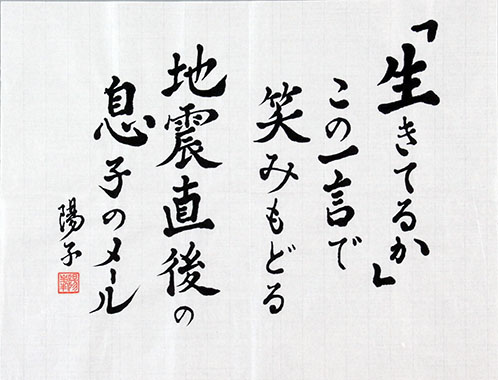 「生きてるか」
この一言で
笑みもどる
地震直後の
息子のメール
陽子